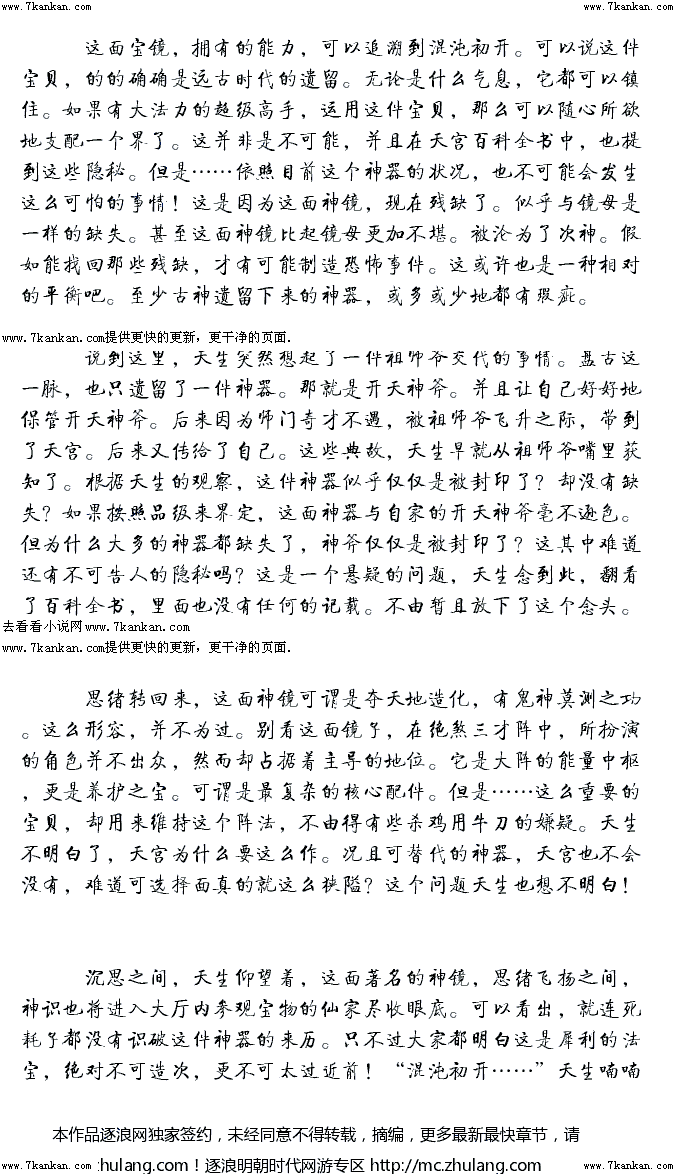 www.7kankan.com www.7kankan.com
这面宝镜，拥有的能力，可以追溯到混沌初开。可以说这件
宝贝，的的确确是远古时代的遗留。无论是什么气息，它都可以镇
住。如果有大法力的超级高手，运用这件宝贝，那么可以随心所欲
地支配一个界了。这并非是不可能，并且在天宫百科全书中，也提
到这些隐秘。但是……依照目前这个神器的状况，也不可能会发生
这么可怕的事情！这是因为这面神镜，现在残缺了。似乎与镜母是
一样的缺失。甚至这面神镜比起镜母更加不堪。被沦为了次神。假
如能找回那些残缺，才有可能制造恐怖事件。这或许也是一种相对
的平衡吧。至少古神遗留下来的神器，或多或少地都有瑕疵。
www.7kankan.com提供更快的更新，更干净的页面.
说到这里，天生突然想起了一件祖师爷交代的事情。盘古这
一脉，也只遗留了一件神器。那就是开天神斧。并且让自己好好地
保管开天神斧。后来因为师门奇才不遇，被祖师爷飞升之际，带到
了天宫。后来又传给了自己。这些典故，天生早就从祖师爷嘴里获
知了。根据天生的观察，这件神器似乎仅仅是被封印了？却没有缺
失？如果按照品级来界定，这面神器与自家的开天神斧毫不逊色。
但为什么大多的神器都缺失了，神斧仅仅是被封印了？这其中难道
还有不可告人的隐秘吗？这是一个悬疑的问题，天生念到此，翻看
了百科全书，里面也没有任何的记载。不由暂且放下了这个念头。
去看看小说网www.7kankan.com
www.7kankan.com提供更快的更新，更干净的页面.
思绪转回来，这面神镜可谓是夺天地造化，有鬼神莫测之功
。这么形容，并不为过。别看这面镜子，在绝煞三才阵中，所扮演
的角色并不出众，然而却占据着主导的地位。它是大阵的能量中枢
，更是养护之宝。可谓是最复杂的核心配件。但是……这么重要的
宝贝，却用来维持这个阵法，不由得有些杀鸡用牛刀的嫌疑。天生
不明白了，天宫为什么要这么作。况且可替代的神器，天宫也不会
没有，难道可选择面真的就这么狭隘？这个问题天生也想不明白！
沉思之间，天生仰望着，这面著名的神镜，思绪飞扬之间，
神识也将进入大厅内参观宝物的仙家尽收眼底。可以看出，就连死
耗子都没有识破这件神器的来历。只不过大家都明白这是犀利的法
宝，绝对不可造次，更不可太过近前！“混沌初开……”天生喃喃
本作品逐浪网独家签约，未经同意不得转载，摘编，更多最新最快章节，请
www.7kankan.com zhulang.com！逐浪明朝时代网游专区 http://mc.zhulang.com www.7kankan.com